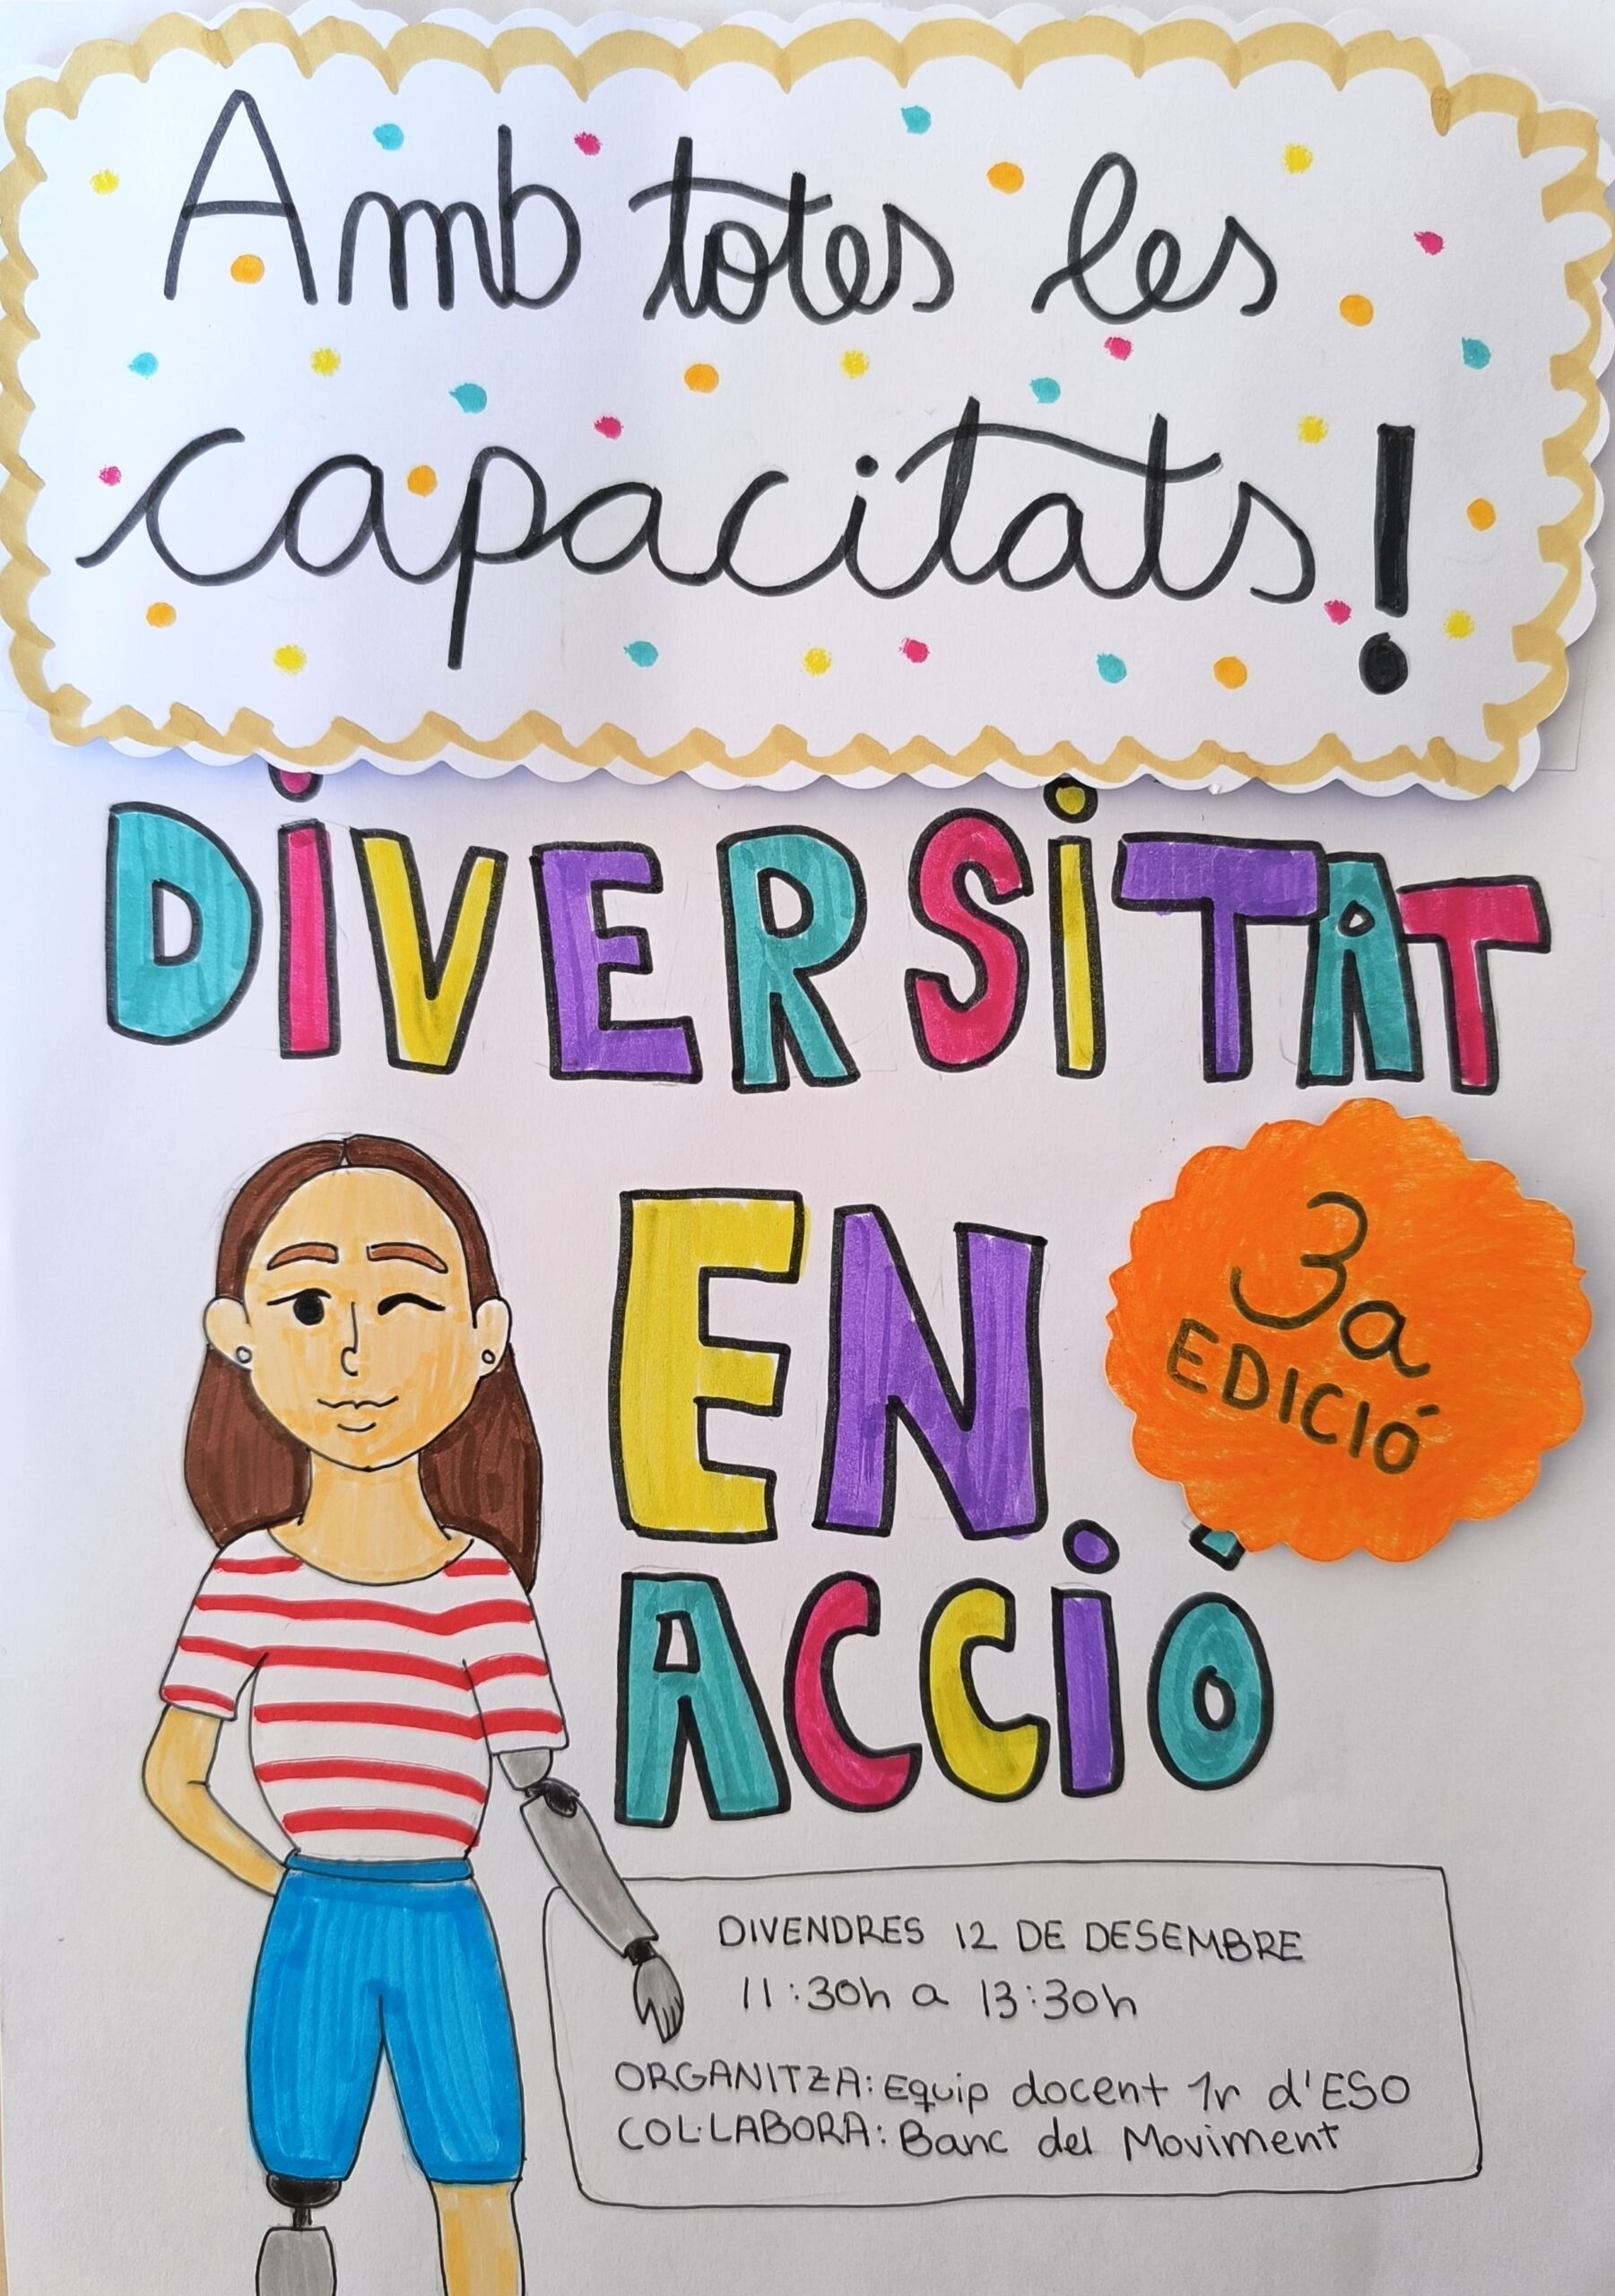 Amb totes les
capacitats!
DIVERSITAT
EN
3a
EDICIÓ
ACCIÓ
DIVENDRES 12 DE DESEMBRE
11:30h a 13:30h
ORGANITZA: Equip docent 1r d'ESO
COL·LABORA: Banc del Moviment